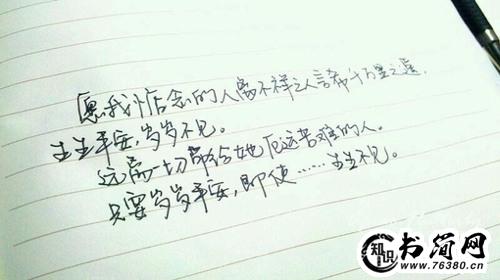 愿我惦念的人离不祥之人言希千万里之遥,
生生平安,岁岁不见。
远离一切带给她厄运苦难的人。
只要岁岁平安,即使……生生不见。
知识
书简网
www.76380.cn